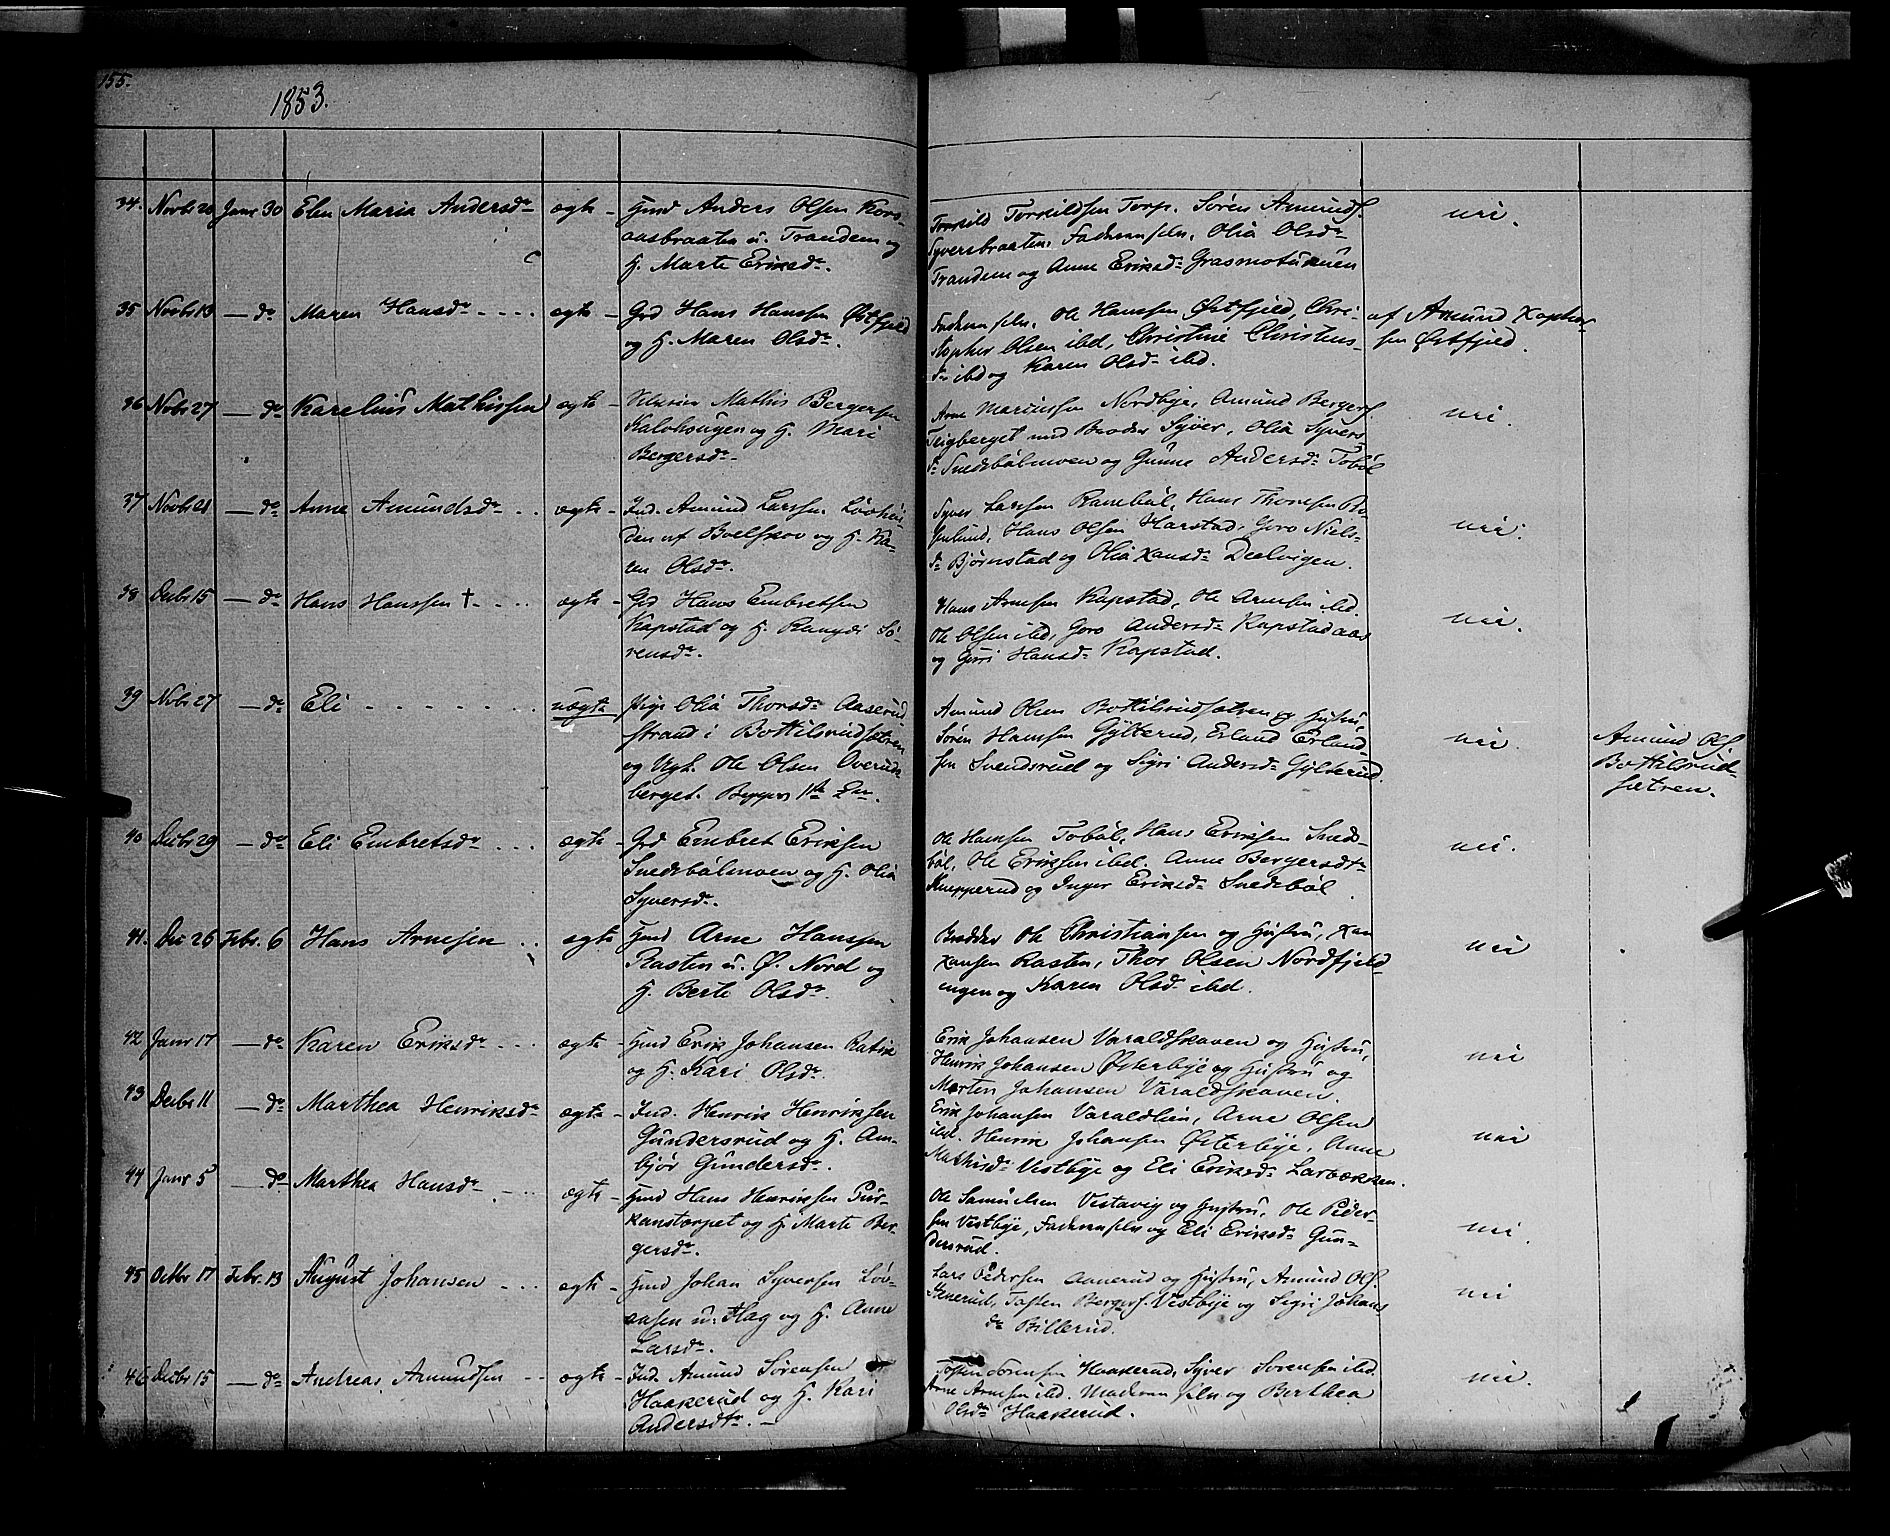 155.
1853.
34. Novbr 20 Janr 30 Elen Maria Andersdr ægte Hmd Anders Olsen Kors-
aasbraaten u. Trandem og
H. Marte Eriksdr.
Torkild Torkildsen Torp. Sören Amunds.
Syversbraaten, Faderen selv, Olia Olsdr
Trandem og Anne Eriksdr Grasmotuknen
nei.
35 Novbr 13 — do Maren Hansdr ægte Grd Hans Hanssen Østfjeld
og H. Maren Olsdr.
Faderen selv. Ole Hanssen Østfjeld, Chri-
stopher Olsen ibd, Christine Christens-
dr ibd og Karen Olsdr ibd.
af Amund Kopher-
sen Østfjeld.
36 Nobr 27 — do Karelius Mathissen ægte Mathis Bergersen
Kalvhougen og H. Mari
Bergersdr.
Arne Marcussen Nordbye, Amund Bergers.
Teigberget med Broder Syver, Olia Syvers-
dr Snedsbölmoen og Gunne Andersdr Toböl
nei.
37 Novbr 21 — do Anne Amundsdr ægte Ind. Amund Larssen
den af Boelskov og H. Ka-
ren Olsdr.
Syver Larssen Raneböl, Hans Thoresen
Hans Olsen Harstad, Goro Niels-
dr Björnstad og Olia Hansdr Deelvigen.
nei.
38 Decbr 15 — do Hans Hanssen † ægte Grd Hans Embretsen
Kapstad og H. Rangdi Sö-
rensdr.
Hans Arnesen Kapstad, Ole Arnesen ibd.
Ole Olsen ibd, Goro Andersdr Kapstadaas
og Gurri Hansdr Kapstad.
nei.
39 Nobr 27 — do Eli uægte Pige Olia Thorsdr Aaserud
strand i Bottilsrudsætren
og Ugk. Ole Olsen Overuds-
berget. Begges 1ste
Amund Olsen Bottilsrudsætren og Hustru,
Sören Hanssen Gylterud, Erland Erland-
sen Svendsrud og Sigri Andersdr Gylterud.
nei.
Amund Ols.
Bottilsrud-
sætren.
40 Decbr 29 — do Eli Embretsdr ægte Grd Embret Eriksen
Snedsbölmoen og H. Olia
Syversdr.
Ole Hanssen Toböl, Hans Eriksen Sneds-
böl, Ole Eriksen ibd. Anne Bergersdtr
Knapperud og Inger Eriksdr Snedsböl.
nei.
41. Dec 26 Febr. 6 Hans Arnesen ægte Hmd Arne Hanssen
Rasten u. Ø. Nord og
H. Berte Olsdr.
Brödder Ole Christiansen og Hustru, Han
Hansen Rasten, Thor Olsen Nordfjeld-
engen og Karen Olsdr ibd.
nei
42 Janr 17 — do Karen Eriksdr ægte Hmd Erik Johansen
og H. Kari Olsdr.
Erik Johansen Varaldskoven og Hustru,
Henrik Johansen Østerbye og Hustru og
Morten Johansen Varaldskoven.
nei
43 Decbr 11 — do Marthea Henriksdr ægte Ind. Henrik Henriksen
Gundersrud og H. Am-
björ Gundersdr.
Erik Johansen Varaldlien, Arne Olsen
ibd. Henrik Johansen Østerbye, Anne
Mathisdr Vestbye og Eli Eriksdr Larbæksen.
nei
44 Janr 5 — do Marthea Hansdr ægte Hmd Hans Henriksen Pur-
kanstorpet og H. Marte Ber-
gersdr.
Ole Samuelsen Vestavig og Hustru, Ole Peder-
sen Vestbye, Faderen selv og Eli Eriksdr Gun-
dersrud.
nei.
45 Octbr 17 Febr. 13 August Johansen ægte Hmd Johan Syversen Löv-
aasen u. Hag og H. Anne
Larsdr.
Lars Pedersen Aanerud og Hustru, Amund Ols.
Tosten Bergers. Vestbye og Sigri Johans
dr Billerud.
nei
46 Decbr 15 — do Andreas Amundsen ægte Ind. Amund Sörensen
Haakerud og H. Kari
Andersdtr.
Tosten Sörensen Haakerud, Syver Sörensen ibd.
Arne Arnesen ibd. Moderen selv og Berthea
Olsdr Haakerud.
nei.